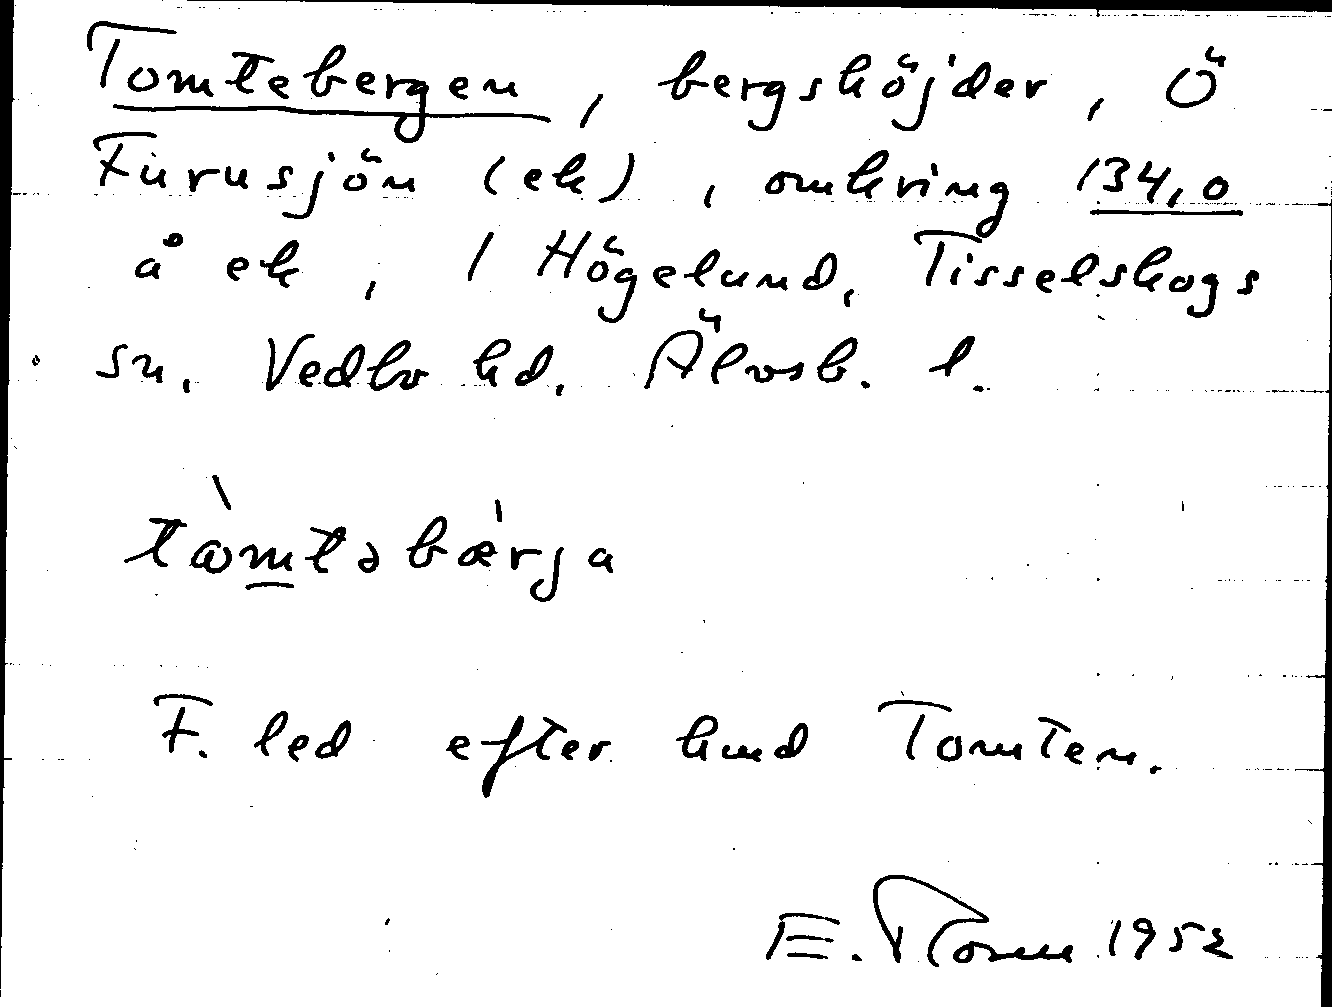 Tomtebergen, bergshöjder, Ö
Furusjön (ek), omkring 134,0
å ek, 1 Högelund, Tisselskogs
sn. Vedbo hd. Älvsb. l.
tòmtəbǽrja
F. led efter hmd Tomten.
E. 1952